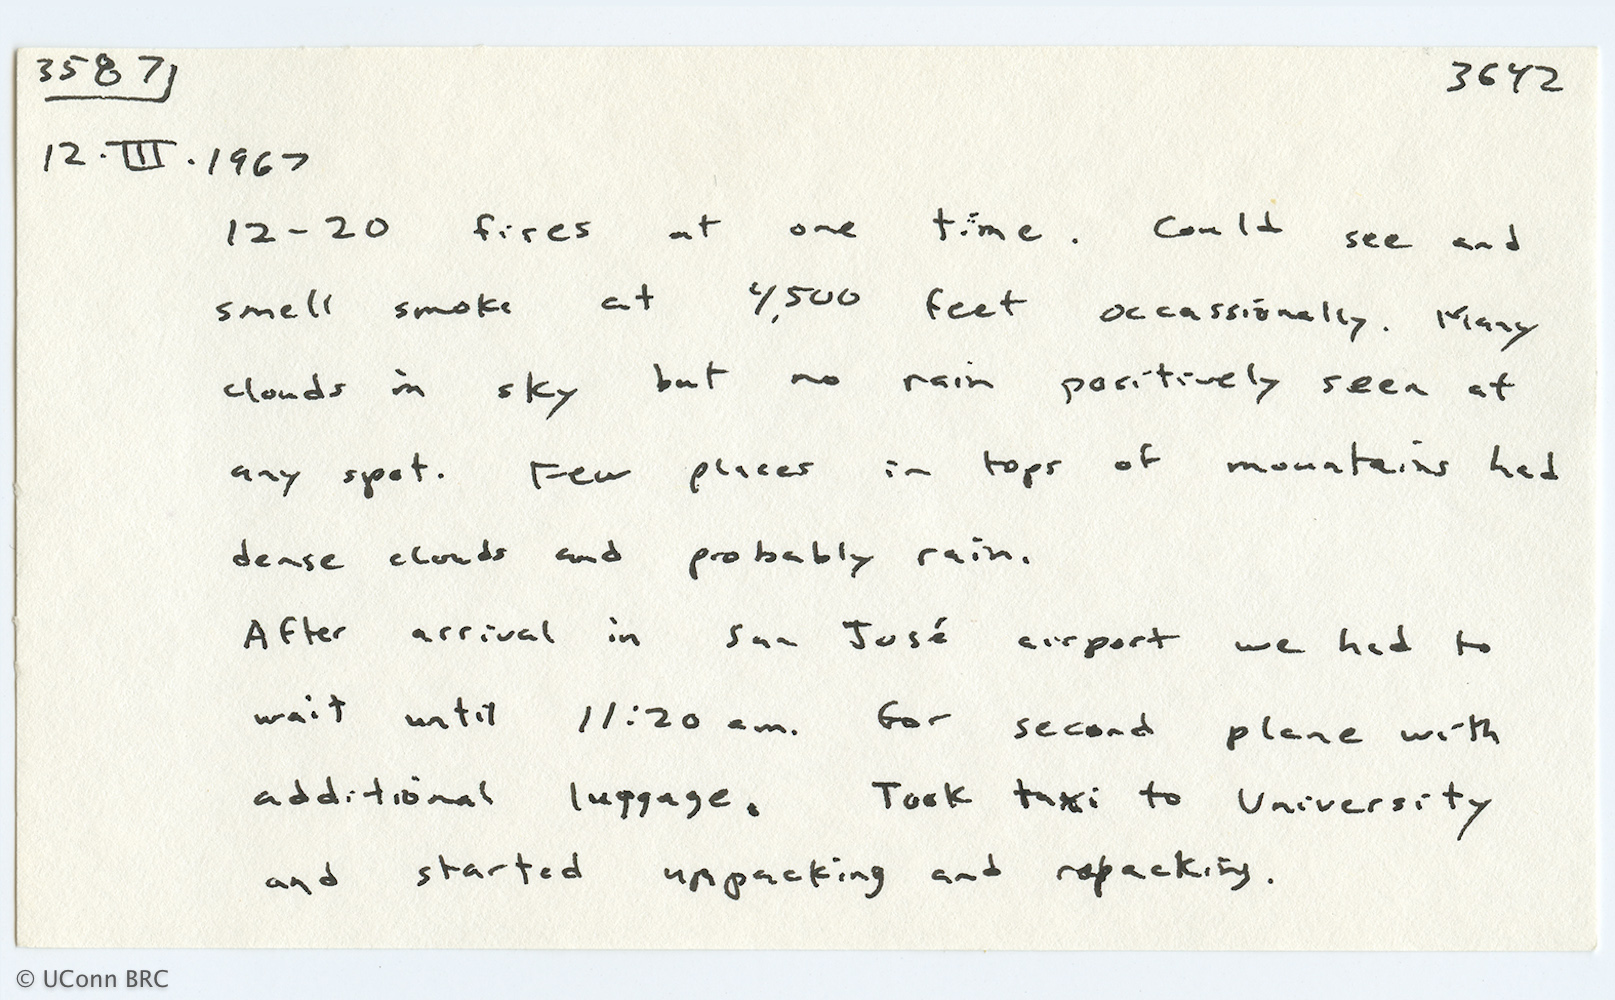 3587 3642
12.III.1967
12-20 fires at one time. Could see and
smell smoke at 4,500 feet occassionally. Many
clouds in sky but no rain positively seen at
any spot. Few places in tops of mountains had
dense clouds and probably rain.
After arrival in San José airport we had to
wait until 11:20 am. for second plane with
additional luggage. Took taxi to University
and started unpacking and repacking.
© UConn BRC